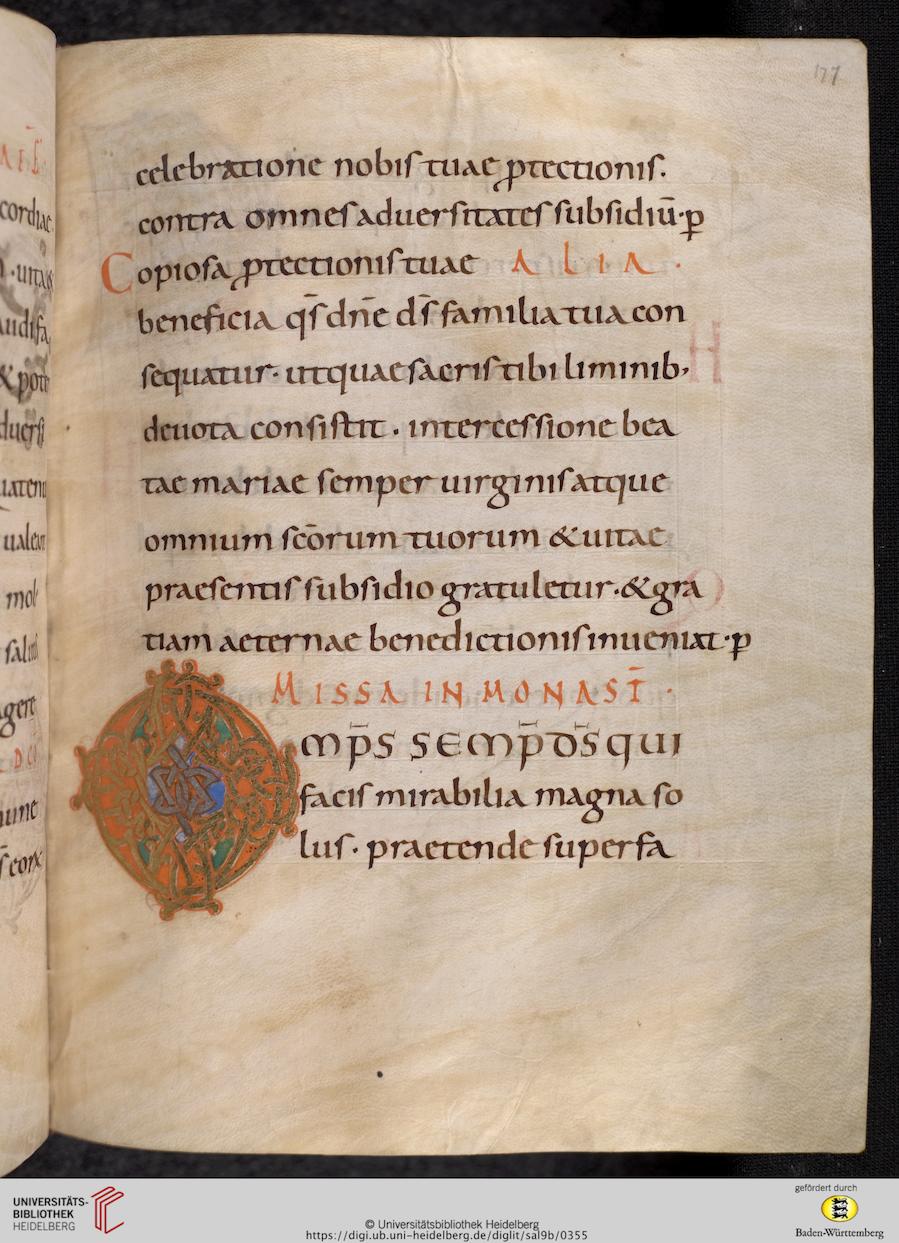 177
celebratione nobiſ tuae ꝓtectioniſ.
contra omneſ aduerſitateſ ſubſidiū·p̄
Copioſa ꝓtectioniſ tuae ALIA·
beneficia qſ̄ dnē dſ̄ familia tua con
ſequatur· ut quae ſacriſ tibi liminib;
deuota conſiſtit· interceſſione bea
tae mariae ſemper uirginiſ atque
omnium ſcōrum tuorum & uitae
praeſentiſ ſubſidio gratuletur·& gra
tiam aeternae benedictioniſ inueniat·p̄
MISSA IN MONAST̄·
OMP̄S SEMP̄ DS̄ QUI
faciſ mirabilia magna ſo
luſ· praetende ſuper fa
UNIVERSITÄTS-
BIBLIOTHEK
HEIDELBERG
© Universitätsbibliothek Heidelberg
https://digi.ub.uni-heidelberg.de/diglit/sal9b/0355
gefördert durch
Baden-Württemberg